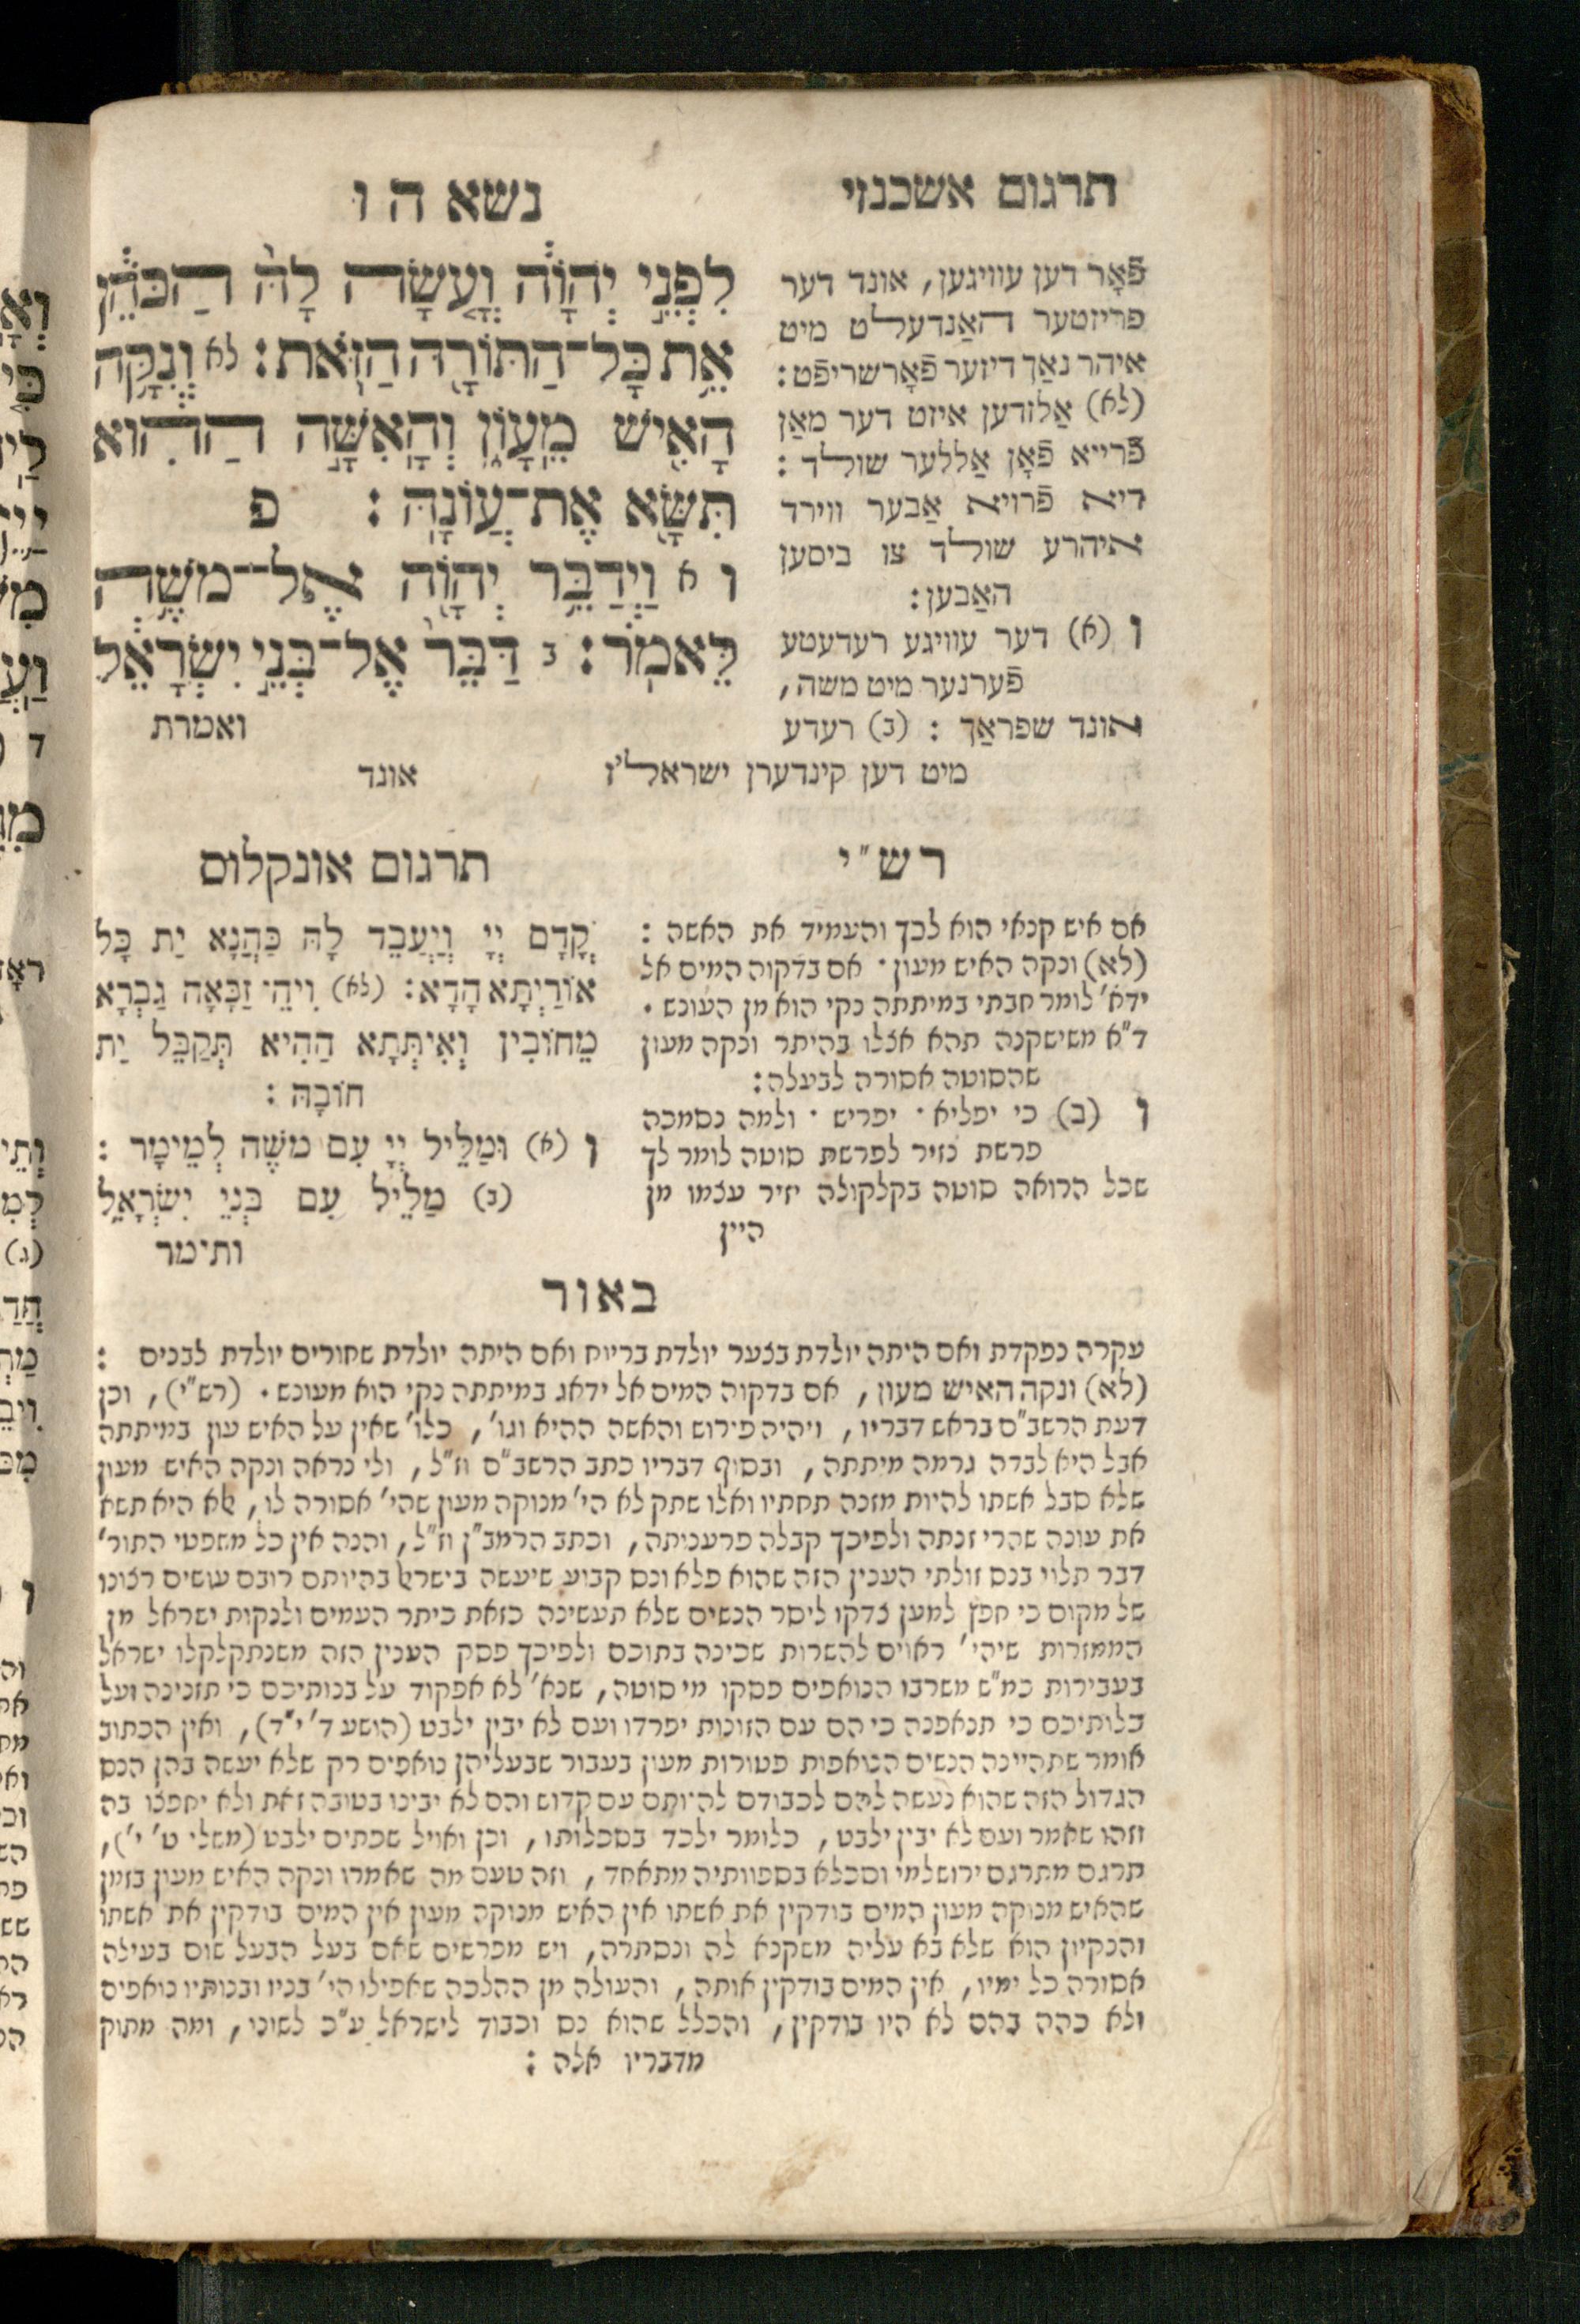 תרגום אשכנזי
נשא ה ו
לִפְנֵ֣י יְהוָ֔ה וְעָ֤שָׂה לָהּ֙ הַכֹּהֵ֔ן
אֵ֥ת כָּל־הַתּוֹרָ֖ה הַזֹּֽאת׃ לא וְנִקָּ֥ה
הָאִ֖ישׁ מֵעָוֺ֑ן וְהָאִשָּׁ֣ה הַהִ֔וא
תִּשָּׂ֖א אֶת־עֲוֺנָֽהּ׃ פ
ו א וַיְדַבֵּ֥ר יְהוָ֖ה אֶל־מֹשֶׁ֥ה
לֵּאמֹֽר׃ ב דַּבֵּר֙ אֶל־בְּנֵ֣י יִשְׂרָאֵ֔ל
ואמרת
פֿאָר דען עוויגען, אונד דער
פריזטער האַנדעלט מיט
איהר נאַך דיזער פֿאָרשריפֿט:
(לא) אַלזדען איזט דער מאַן
פֿרייא פֿאָן אַללער שולד:
דיא פֿרויא אַבער ווירד
איהרע שולד צו ביסען
האַבען:
ו (א) דער עוויגע רעדעטע
פֿערנער מיט משה,
אונד שפראַך: (ב) רעדע
מיט דען קינדערן ישראל'ז
אונד
רש"י
אם איש קנאי הוא לכך והעמיד את האשה:
(לא) ונקה האיש מעון· אם בדקוה המים אל
ידא' לומר חבתי במיתתה נקי הוא מן העונש·
ד"א משישקנה תהא אצלו בהיתר ונקה מעון
שהסוטה אסורה לבעלה:
ו (ב) כי יפליא· יפריש· ולמה נסמכה
פרשת נזיר לפרשת סוטה לומר לך
שכל הרואה סוטה בקלקולה יזיר עצמו מן
היין
תרגום אונקלוס
קֳדָם יְיָ וְיַעְבֵּד לָהּ כַּהֲנָא יַת כָּל
אוֹרַיְתָא הָדָא: (לא) וִיהֵי זַכָּאָה גַבְרָא
מֵחוֹבִין וְאִיתְּתָא הַהִיא תְּקַבֵּל יַת
חוֹבָהּ:
ו (א) וּמַלֵּיל יְיָ עִם מֹשֶׁה לְמֵימָר:
(ב) מַלֵּיל עִם בְּנֵי יִשְׂרָאֵל
ותימר
באור
עקרה נפקדת ואם היתה יולדת בצער יולדת בריוח ואם היתה יולדת שחורים יולדת לבנים:
(לא) ונקה האיש מעון, אם בדקוה המים אל ידאג במיתתה נקי הוא מעונש· (רש"י), וכן
דעת הרשב"ם בראש דבריו, ויהיה פירוש והאשה ההיא וגו', כלו' שאין על האיש עון במיתתה
אבל היא לבדה גרמה מיתתה, ובסוף דבריו כתב הרשב"ם וז"ל, ולי נראה ונקה האיש מעון
שלא סבל אשתו להיות מזנה תחתיו ואלו שתק לא הי' מנוקה מעון שהי' אסורה לו, אלא היא תשא
את עונה שהרי זנתה ולפיכך קבלה פרעניתה, וכתב הרמב"ן וז"ל, והנה אין כל משפטי התור'
דבר תלוי בנס זולתי הענין הזה שהוא פלא ונס קבוע שיעשה בישראל בהיותם רובם עושים רצונו
של מקום כי חפץ למען צדקו ליסר הנשים שלא תעשינה כזאת כיתר העמים ולנקות ישראל מן
הממזרות שיהי' ראוים להשרות שכינה בתוכם ולפיכך פסק הענין הזה משנתקלקלו ישראל
בעבירות כמ"ש משרבו הנואפים פסקו מי סוטה, שנא' לא אפקוד על בנותיכם כי תזנינה ועל
כלותיכם כי תנאפנה כי הם עם הזונות יפרדו ועם לא יבין ילבט (הושע ד' י"ד), ואין הכתוב
אומר שתהיינה הנשים הנואפות פטורות מעון בעבור שבעליהן נואפים רק שלא יעשה בהן הנס
הגדול הזה שהוא נעשה להם לכבודם להיותם עם קדוש והם לא יבינו בטובה זאת ולא יחפצו בה
וזהו שאמר ועם לא יבין ילבט, כלומר ילכד בסכלותו, וכן ואויל שפתים ילבט (משלי ט' י'),
תרגם מתרגם ירושלמי וסכלא בספוותיה מתאחד, וזה טעם מה שאמרו ונקה האיש מעון בזמן
שהאיש מנוקה מעון המים בודקין את אשתו אין האיש מנוקה מעון אין המים בודקין את אשתו
והנקיון הוא שלא בא עליה משקנא לה ונסתרה, ויש מפרשים שאם בעל הבעל שום בעילה
אסורה כל ימיו, אין המים בודקין אותה, והעולה מן ההלכה שאפילו הי' בניו ובנותיו נואפים
ולא כהה בהם לא היו בודקין, והכלל שהוא נס וכבוד לישראל ע"כ לשונו, ומה מתוק
מדבריו אלה: